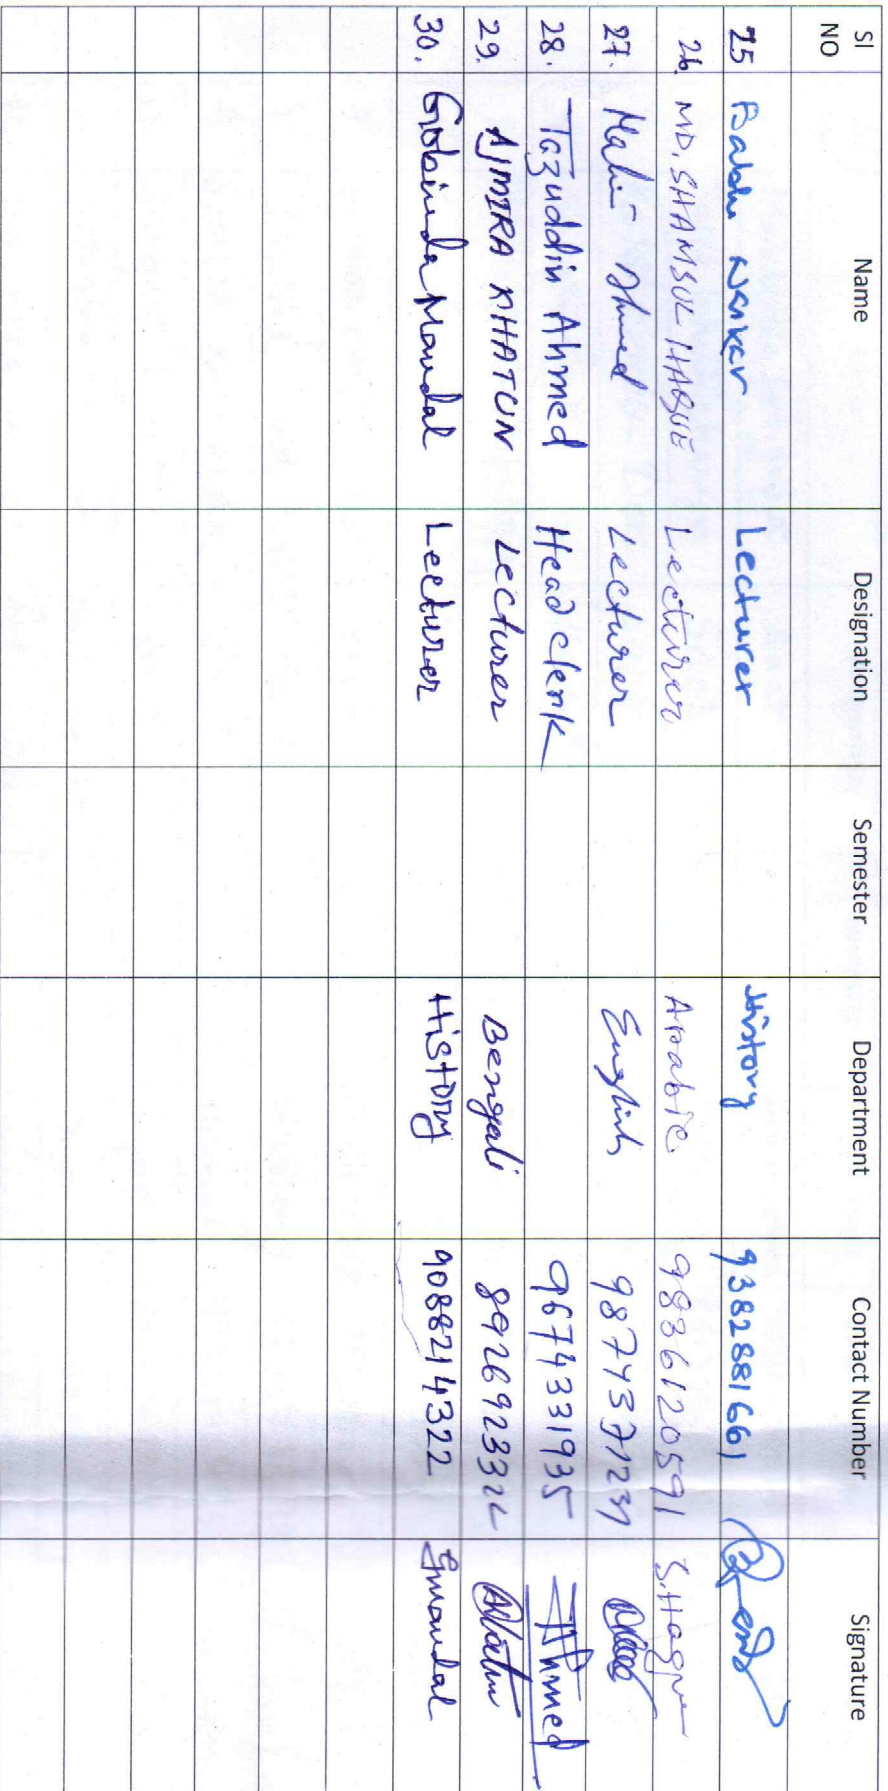 Sl NO Name Designation Semester Department Contact Number Signature
25 Lecturer History 9382881661
26. MD. SHAMSUL HAQUE Lecturer Arabic. 9836120591 S. Haque
27. Ahmed Lecturer English
28. Tazuddin Ahmed Head clerk 9674331935 Ahmed
29. AJMIRA KHATUN Lecturer Bengali
30. Gobinda Mondal Lecturer History 9088214322 Gmondal